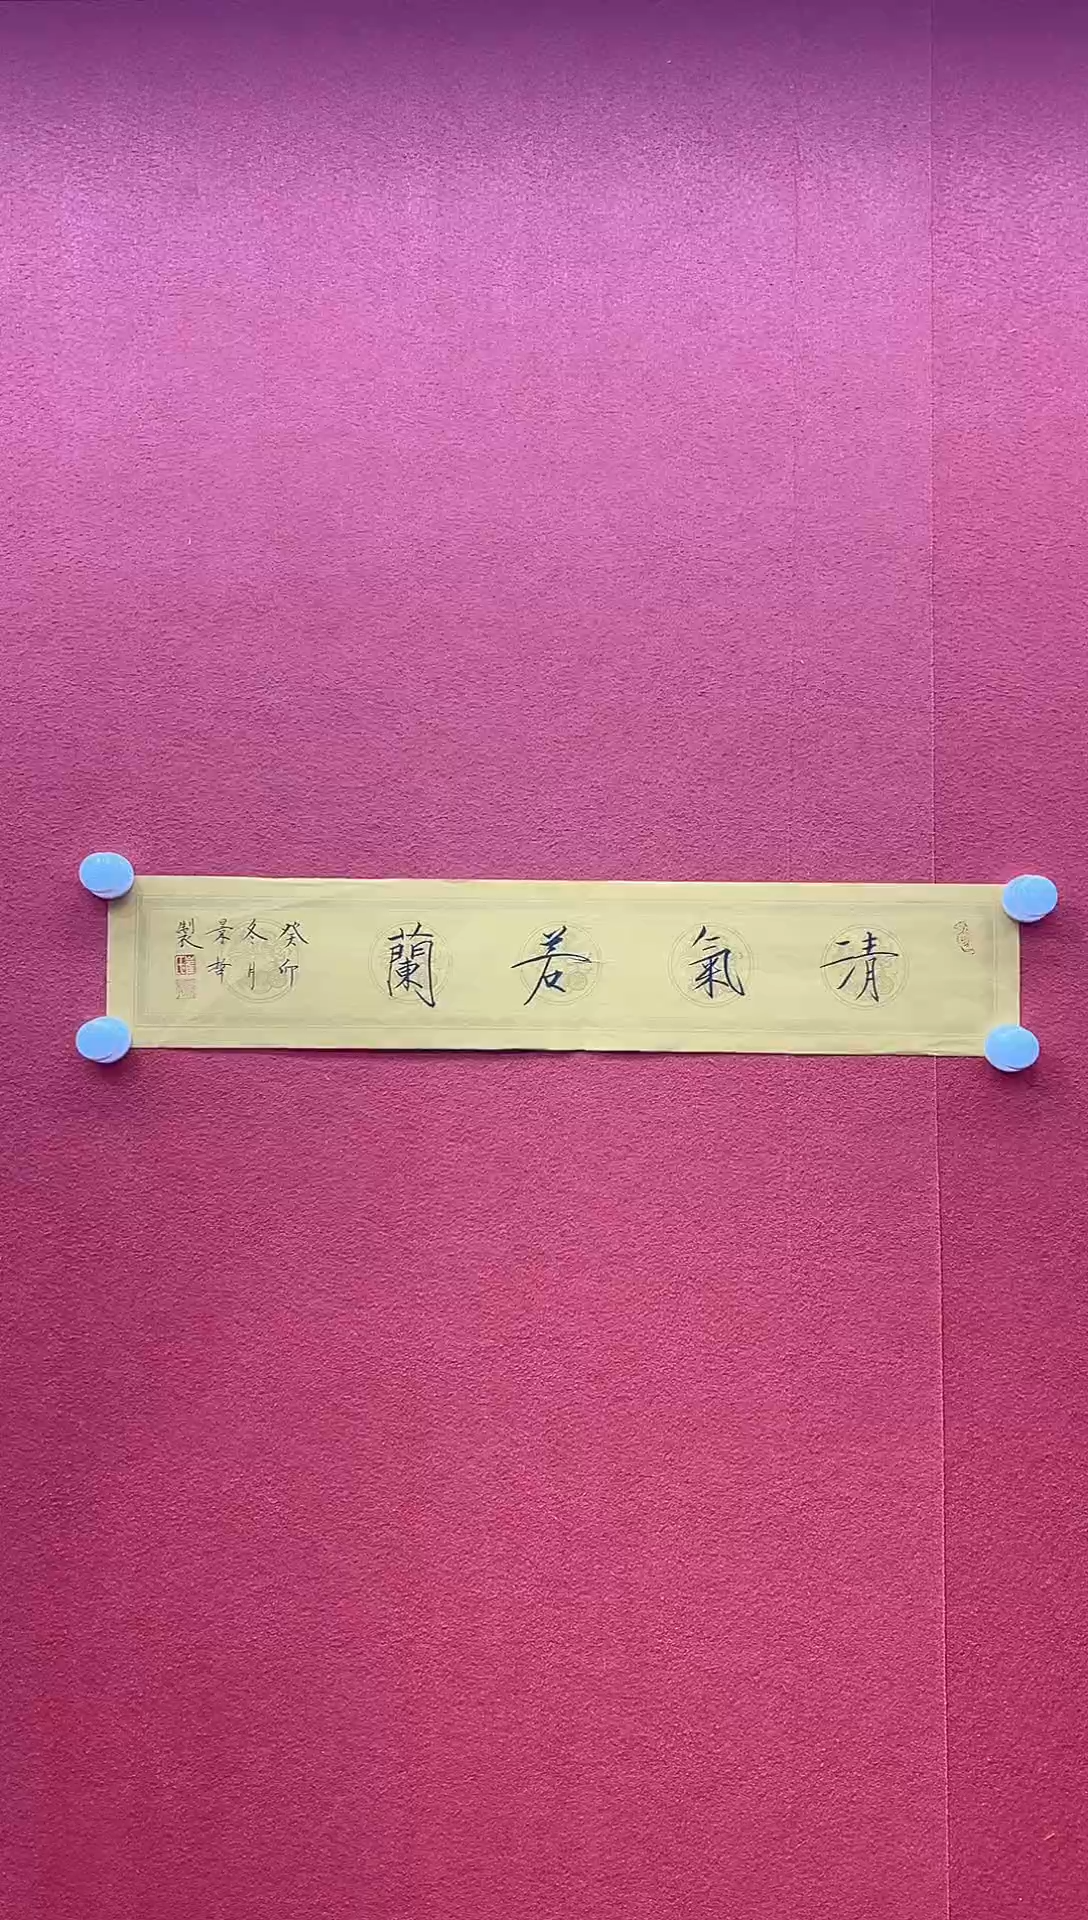 清氣若蘭
癸卯
冬月
景華
製